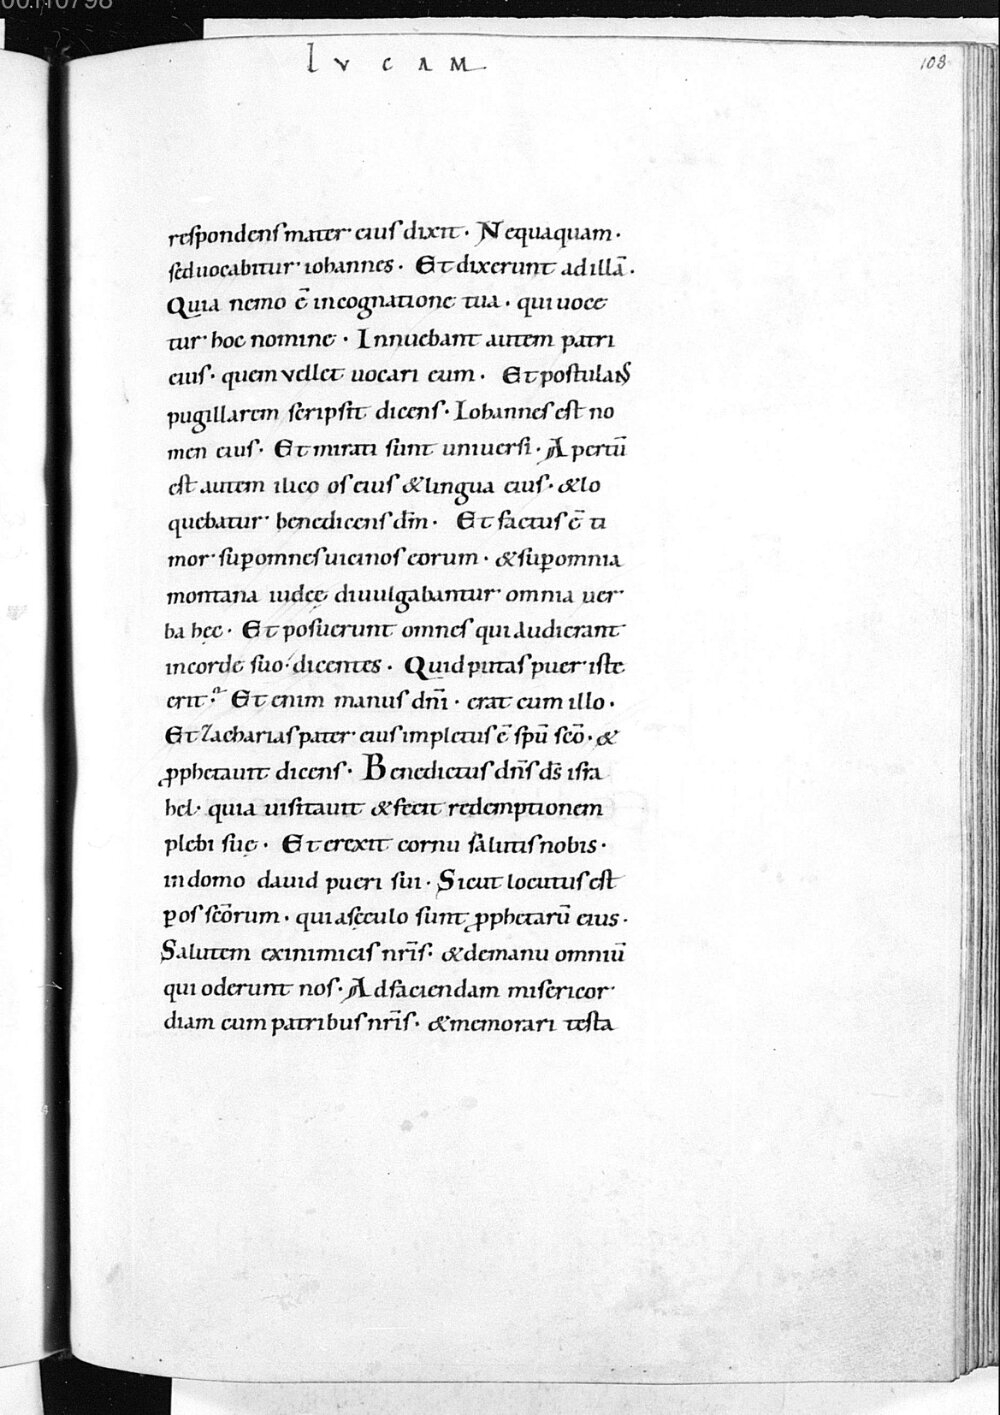 LVCAM
108
respondens mater eius dixit. Nequaquam.
sed uocabitur iohannes. Et dixerunt ad illā.
Quia nemo ē in cognatione tua. qui uoce
tur hoc nomine. Innuebant autem patri
eius. quem vellet uocari eum. Et postulans
pugillarem scripsit dicens. Iohannes est no
men eius. Et mirati sunt uniuersi. Apertū
est autem ilico os eius & lingua eius. & lo
quebatur benedicens dm̄. Et factus ē ti
mor sup omnes uicinos eorum. & sup omnia
montana iudeę diuulgabantur omnia uer
ba hęc. Et posuerunt omnes qui audierant
in corde suo. dicentes. Quid putas puer iste
erit? Et enim manus dn̄i. erat cum illo.
Et Zacharias pater eius impletus ē spū scō. &
pphetauit dicens. Benedictus dn̄s ds̄ isra
hel. quia uisitauit & fecit redemptionem
plebi suę. Et erexit cornu salutis nobis.
in domo dauid pueri sui. Sicut locutus est
p os scōrum. qui a sęculo sunt pphetarū eius.
Salutem ex inimicis nr̄is. & de manu omniū
qui oderunt nos. Ad faciendam misericor
diam cum patribus nr̄is. & memorari testa